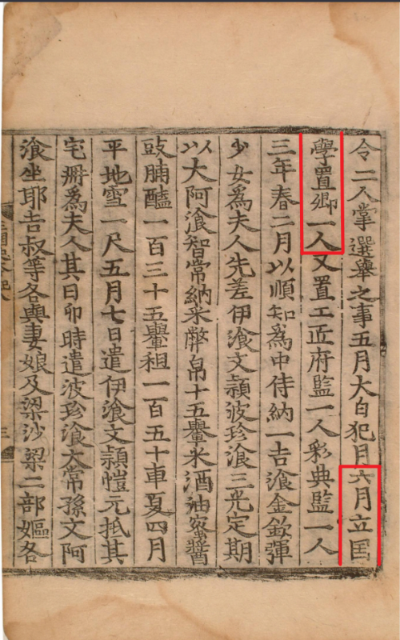 令二人掌選舉之事五月大白犯月六月立国
學置卿一人又置工匠府監一人彩典監一人
三年春二月以順知爲中侍納一吉飡金欽彈
少女爲夫人先差伊飡文穎波珍飡三光定期
以大阿飡智常納采幣帛十五轝米酒油蜜醬
豉脯醯一百三十五轝租一百五十車夏四月
平地雪一尺五月七日遣伊飡文穎愷元抵其
宅冊爲夫人其日卯時遣波珍飡大常孫文阿
飡坐耶吉叔等各與妻娘及梁沙梁二部嫗各